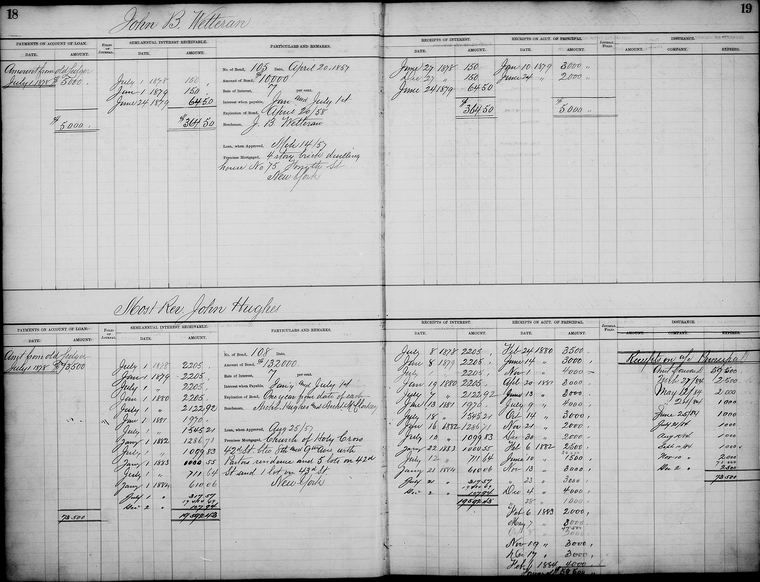 18
John B. Wetteran
PAYMENTS ON ACCOUNT OF LOAN.
DATE. AMOUNT.
SEMI-ANNUAL INTEREST RECEIVABLE.
DATE. AMOUNT.
PARTICULARS AND REMARKS.
Amount from old Ledger
July 1 1878 $5000
$5000.
July 1 1878 150
Jany 1 1879 150
June 24 1879 64 50
$364 50
No. of Bond, 105 Date, April 20. 1857
Amount of Bond, $10000
Rate of Interest, 7 per cent.
Interest when payable, Jan and July 1st
Expiration of Bond, April 20/58
Bondsman, J. B. Wetteran
Loan, when Approved, Mch 14/57
Premises Mortgaged, 4 story brick dwelling
house No 75 Forsyth St
New York
19
RECEIPTS OF INTEREST.
DATE. AMOUNT.
RECEIPTS ON ACCT. OF PRINCIPAL.
DATE. AMOUNT.
INSURANCE.
AMOUNT. COMPANY. EXPIRES.
June 27 1878 150
Dec 27 " 150
June 24 1879 64 50
$364 50
Jan 10 1879 3000 "
June 24 " 2000 "
$5000
Most Rev John Hughes
PAYMENTS ON ACCOUNT OF LOAN.
DATE. AMOUNT.
SEMI-ANNUAL INTEREST RECEIVABLE.
DATE. AMOUNT.
PARTICULARS AND REMARKS.
Amt from old Ledger
July 1 1878 $73500
73.500
July 1 1878 2205.
Jany 1 1879 2205.
July 1 " 2205.
Jany 1 1880 2205.
July 1 " 2122.92
Jany 1 1881 1970.
July 1 " 1545.21
Jany 1 1882 1286.71
July 1 " 1099.83
Jany 1 1883
July 1 " 711.64
Jany 1 1884 610.06
July 1 " 317.57
Dec 2 "
19592.43
No. of Bond, 108 Date,
Amount of Bond, $132000
Rate of Interest, 7 per cent.
Interest when Payable, Jan'y and July 1st
Expiration of Bond, One year from date of each
Bondsman, Archb. Hughes and
Loan, when Approved, Aug 25/57
Premises Mortgaged, Church of Holy Cross
42d St. btw 8th and 9th Aves with
Pastors residence and 5 lots on 42d
St and 1 lot on 43d St
New York
RECEIPTS OF INTEREST.
DATE. AMOUNT.
RECEIPTS ON ACCT. OF PRINCIPAL.
DATE. AMOUNT.
INSURANCE.
AMOUNT. COMPANY. EXPIRES.
July 8 1878 2205.
Jan 8 1879 2205.
July 2205.
Jan 19 1880 2205.
July 7 " 2122.92
Jan 13 1881 1970.
July 18 " 1545.21
1882 1286.71
July 10 " 1099.83
Jany 22 1883
July 12 " 711.64
Jany 21 1884 610.06
July 21 " 317.57
Dec 2 "
19592.43
Feb 24 1880 3500.
June 14 " 3000.
Nov 1 " 4000
Apl 20 1881 3000
June 13 " 3000
July 9 " 4000
Oct 14 " 3000
Nov 21 " 2000
Dec 30 " 2000
Feb 6 1882 2500
June 10 " 1500
Nov 13 " 3000
23 " 3000
Dec 4 " 4000
28 " 1000
Feb 6 1883 2000
May 7 " 3000
Nov 19 " 3000
Dec 17 " 3000
Feb 1884 4000
Receipts on a/c Principal
Amt forward 59500
Feb 27/84 2500
May 12/84 2000
1000
June 25/84 1000
July 21/84 1000
1000
1000
Nov 10 " 2000
Dec 2 " 2500
73.500